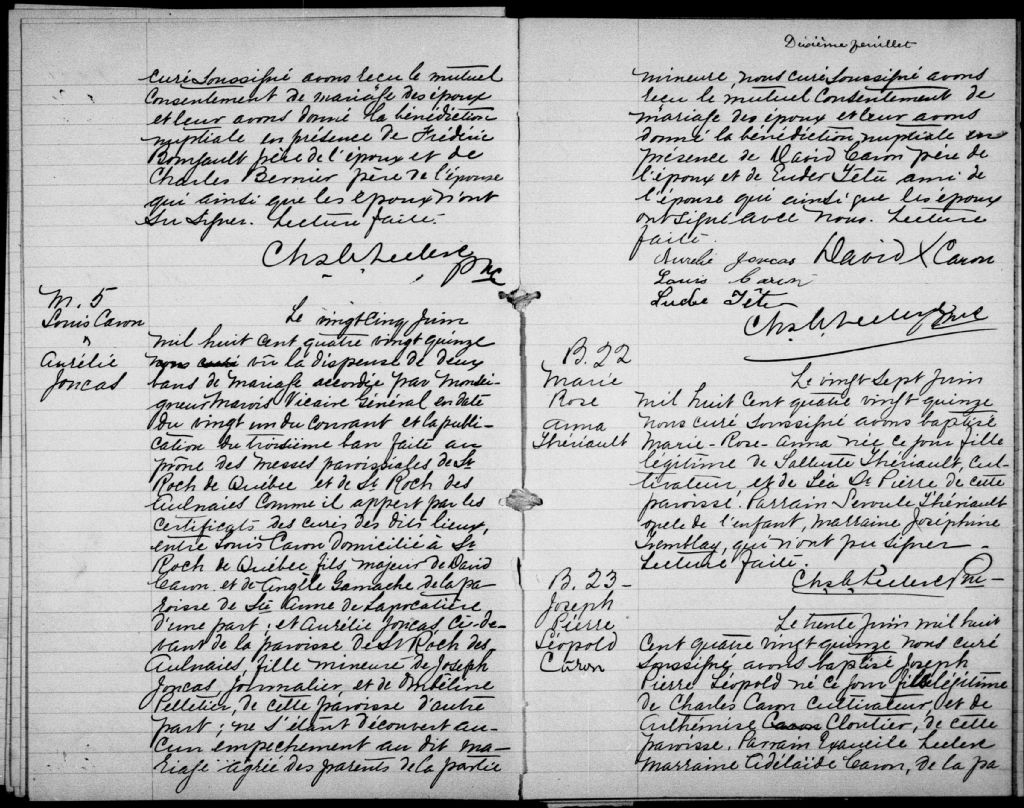 curé soussigné avons reçu le mutuel
consentement de mariage des époux
et leur avons donné la bénédiction
nuptiale en présence de Frédéric
père de l'époux et de
Charles Bernier père de l'épouse
qui ainsi que les époux n'ont
su signer. Lecture faite.
Chs. Leclerc Ptre
M. 5
Louis Caron
&
Aurélie
Joncas
Le vingt cinq Juin
mil huit cent quatre vingt quinze
nous curé vu la dispense de deux
bans de mariage accordée par Monsei-
gneur Marois Vicaire Général en date
du vingt un du courant et la publi-
cation du troisième ban faite au
prone des messes paroissiales de St
Roch de Québec et de St Roch des
Aulnaies comme il appert par les
certificats des curés des dits lieux,
entre Louis Caron domicilié à St
Roch de Québec fils majeur de David
Caron et de Angèle Gamache de la pa-
roisse de Ste Anne de Lapocatière
d'une part; et Aurélie Joncas ci-de-
vant de la paroisse de St Roch des
Aulnaies, fille mineure de Joseph
Joncas, Journalier, et de Ombéline
Pelletier, de cette paroisse d'autre
part; ne s'étant découvert au-
cun empechement au dit ma-
riage agrée des parents de la partie
Dixième feuillet
mineure, nous curé soussigné avons
reçu le mutuel consentement de
mariage des époux et leur avons
donné la bénédiction nuptiale en
présence de David Caron père de
l'époux et de Têtu ami de
l'épouse qui ainsi que les époux
ont signé avec nous. Lecture
faite.
Aurélie Joncas David X Caron
Louis Caron
Têtu
Chs. Leclerc Ptre
B. 22
Marie
Rose
Anna
Thériault
Le vingt sept Juin
mil huit cent quatre vingt quinze
nous curé soussigné avons baptisé
Marie-Rose-Anna née ce jour fille
légitime de Salluste Thériault, cul-
tivateur et de Léa St Pierre de cette
paroisse. Parrain Thériault
oncle de l'enfant, marraine Joséphine
Tremblay, qui n'ont pu signer.
Lecture faite.
Chs. Leclerc Ptre
B. 23
Joseph
Pierre
Léopold
Caron
Le trente Juin mil huit
cent quatre vingt quinze nous curé
soussigné avons baptisé Joseph
Pierre Léopold né ce jour fils légitime
de Charles Caron cultivateur et de
Arthémise Caron Cloutier, de cette
paroisse. Parrain Leclerc
marraine Adélaïde Caron, de la pa